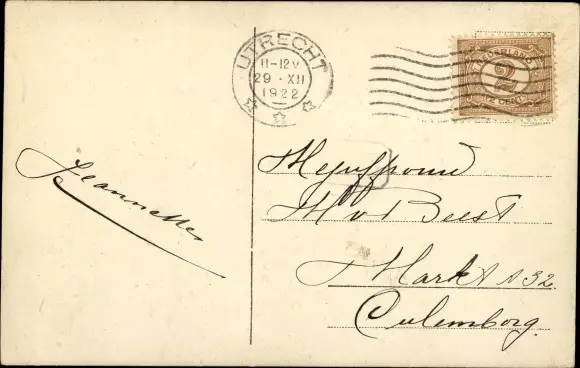 UTRECHT
11-12V
29 · XII
1922
NEDERLAND
2
Jeannette
Mejuffrouw
M v Beest
Markt A 32
Culemborg.